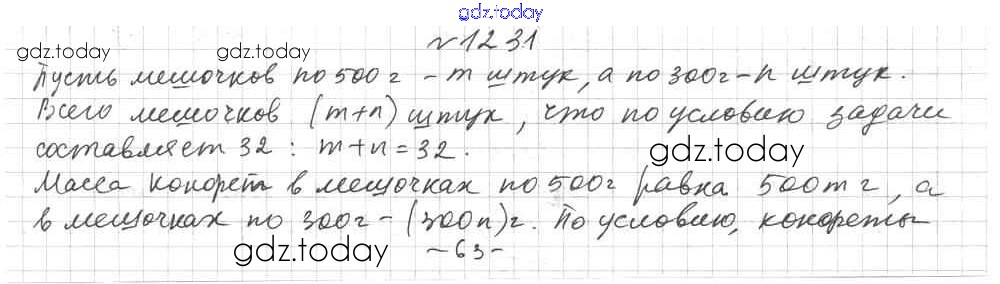 gdz.today
№1231
gdz.today gdz.today
Пусть мешочков по 500г - m штук, а по 300г - n штук.
Всего мешочков (m+n) штук, что по условию задачи
составляет 32 : m+n=32.
gdz.today
Масса конфет в мешочках по 500г равна 500m г, а
в мешочках по 300г - (300n)г. По условию, конфеты
gdz.today
-63-